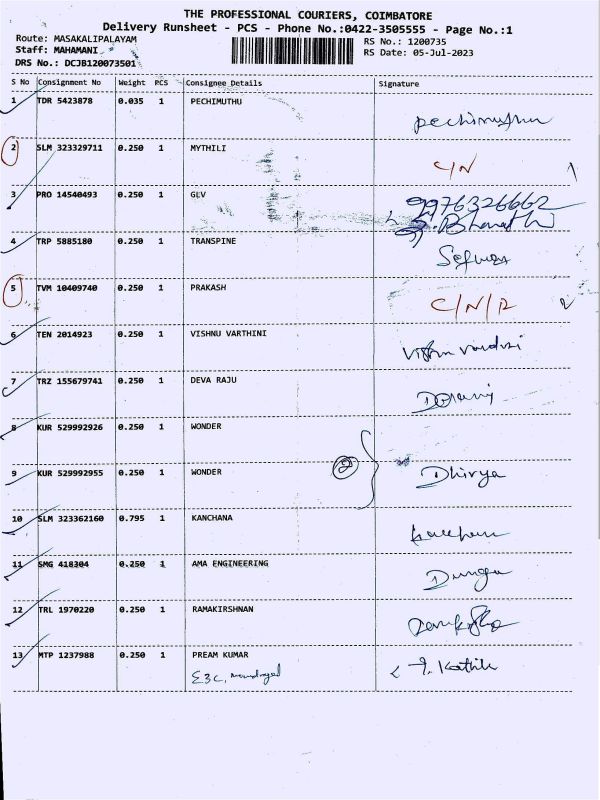 THE PROFESSIONAL COURIERS, COIMBATORE
Delivery Runsheet - PCS - Phone No.:0422-3505555 - Page No.:1
Route: MASAKALIPALAYAM
RS No.: 1200735
Staff: MAHAMANI
RS Date: 05-Jul-2023
DRS No.: DCJB120073501
S No Consignment No Weight PCS Consignee Details Signature
1 TDR 5423878 0.035 1 PECHIMUTHU
pechimuthu
2 SLM 323329711 0.250 1 MYTHILI
C/N 1
3 PRO 14540493 0.250 1 GLV
9976326662
Bharathi
4 TRP 5885180 0.250 1 TRANSPINE
5 TVM 10409740 0.250 1 PRAKASH
C/N/R 2
6 TEN 2014923 0.250 1 VISHNU VARTHINI
7 TRZ 155679741 0.250 1 DEVA RAJU
8 KUR 529992926 0.250 1 WONDER
2
9 KUR 529992955 0.250 1 WONDER
Dhivya
10 SLM 323362160 0.795 1 KANCHANA
11 SMG 418304 0.250 1 AMA ENGINEERING
Durga
12 TRL 1970220 0.250 1 RAMAKIRSHNAN
13 MTP 1237988 0.250 1 PREAM KUMAR